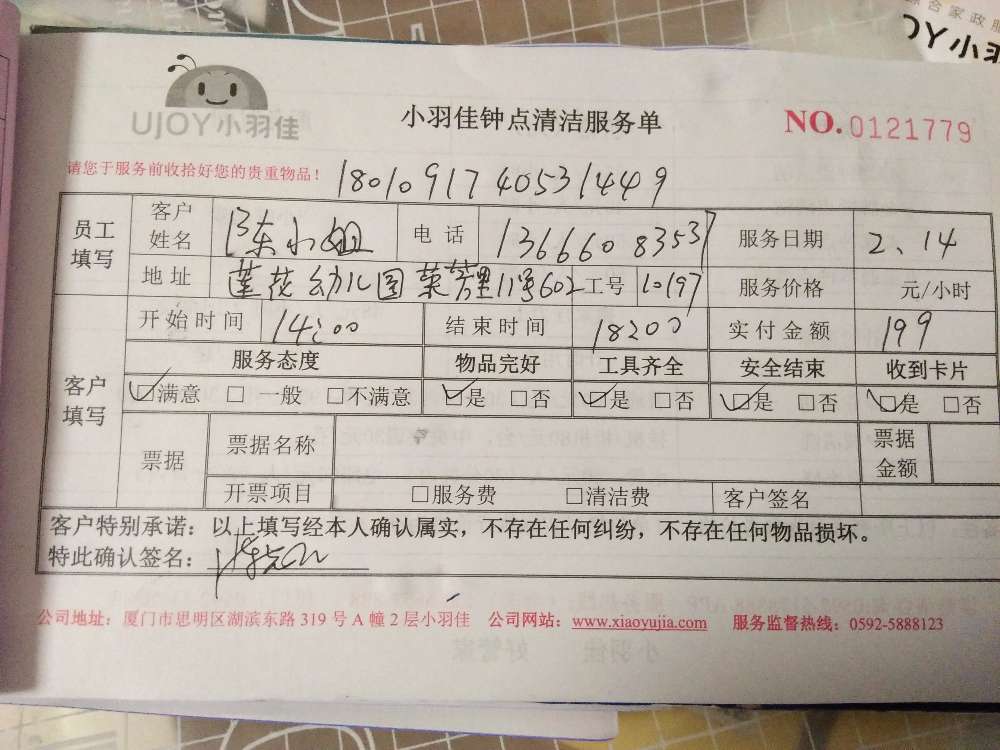 综合家政服
OY小羽
UJOY小羽佳
小羽佳钟点清洁服务单
NO.0121779
请您于服务前收拾好您的贵重物品！
1801091740531449
员工填写
客户姓名 陈小姐 电话 13666083537 服务日期 2、14
地址 莲花幼儿园菜 里11号602 工号 10197 服务价格 元/小时
客户填写
开始时间 14:00 结束时间 18:00 实付金额 199
服务态度 物品完好 工具齐全 安全结束 收到卡片
☑满意 □一般 □不满意 ☑是 □否 ☑是 □否 ☑是 □否 ☑是 □否
票据 票据名称 票据金额
开票项目 □服务费 □清洁费 客户签名
客户特别承诺：以上填写经本人确认属实，不存在任何纠纷，不存在任何物品损坏。
特此确认签名：
公司地址：厦门市思明区湖滨东路 319 号 A 幢 2 层小羽佳 公司网站：www.xiaoyujia.com 服务监督热线：0592-5888123